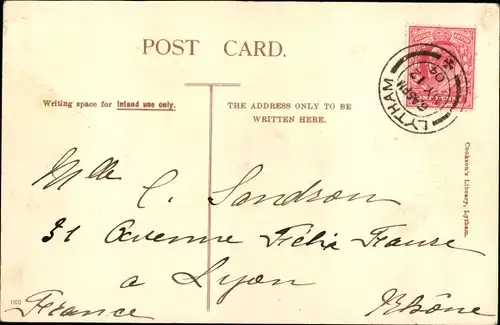 POST CARD.
Writing space for Inland use only.
THE ADDRESS ONLY TO BE
WRITTEN HERE.
LYTHAM
Cookson's Library, Lytham.
Mlle C. Sandson
31 Avenue Félix Faure
a Lyon
France
Rhône